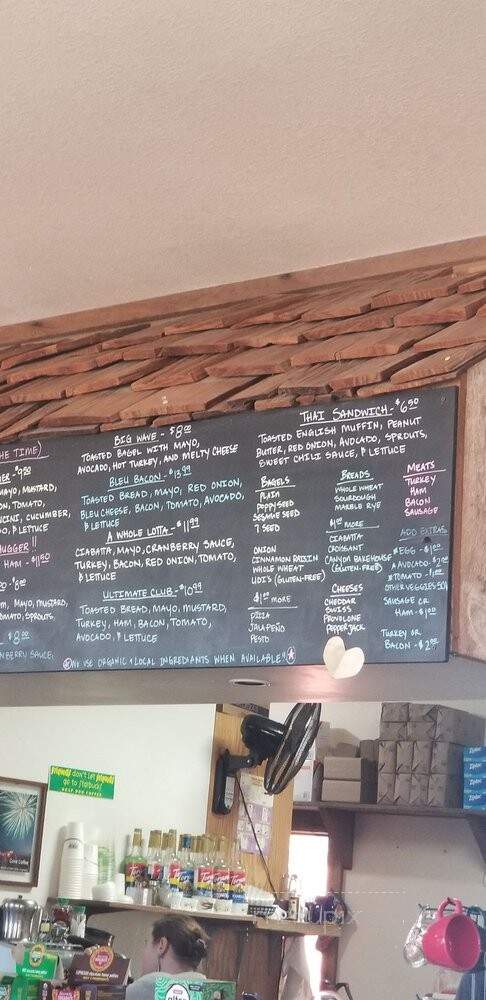 HE TIME)
$9.00
MAYO, MUSTARD,
ON, TOMATO,
CINI, CUCUMBER,
DO, & LETTUCE
UGGER!!
HAM - $11.50
$8.00
M, MAYO, MUSTARD,
TOMATO, SPROUTS,
$8.00
NBERRY SAUCE,
BIG WAVE - $8.00
TOASTED BAGEL WITH MAYO,
AVOCADO, HOT TURKEY, AND MELTY CHEESE
BLEU BACON - $13.99
TOASTED BREAD, MAYO, RED ONION,
BLEU CHEESE, BACON, TOMATO, AVOCADO,
& LETTUCE
A WHOLE LOTTA - $11.99
CIABATTA, MAYO, CRANBERRY SAUCE,
TURKEY, BACON, RED ONION, TOMATO,
& LETTUCE
ULTIMATE CLUB - $10.99
TOASTED BREAD, MAYO, MUSTARD,
TURKEY, HAM, BACON, TOMATO,
AVOCADO, & LETTUCE
WE USE ORGANIC & LOCAL INGREDIANTS WHEN AVAILABLE!!
THAI SANDWICH - $6.50
TOASTED ENGLISH MUFFIN, PEANUT
BUTTER, RED ONION, AVOCADO, SPROUTS,
SWEET CHILI SAUCE, & LETTUCE
BAGELS
PLAIN
POPPY SEED
SESAME SEED
7 SEED
ONION
CINNAMON RAISIN
WHOLE WHEAT
UDI'S (GLUTEN-FREE)
$1.00 MORE
PIZZA
JALAPEÑO
PESTO
BREADS
WHOLE WHEAT
SOURDOUGH
MARBLE RYE
$1.00 MORE
CIABATTA
CROISSANT
CANYON BAKEHOUSE
(GLUTEN-FREE)
CHEESES
CHEDDAR
SWISS
PROVOLONE
PEPPER JACK
MEATS
TURKEY
HAM
BACON
SAUSAGE
ADD EXTRAS
EGG - $1.00
AVOCADO - $2.00
TOMATO - $1.00
OTHER VEGGIES 50¢
SAUSAGE OR
HAM - $1.00
TURKEY OR
BACON - $2.00
friends don't let friends
go to starbucks
Torani
Ziploc